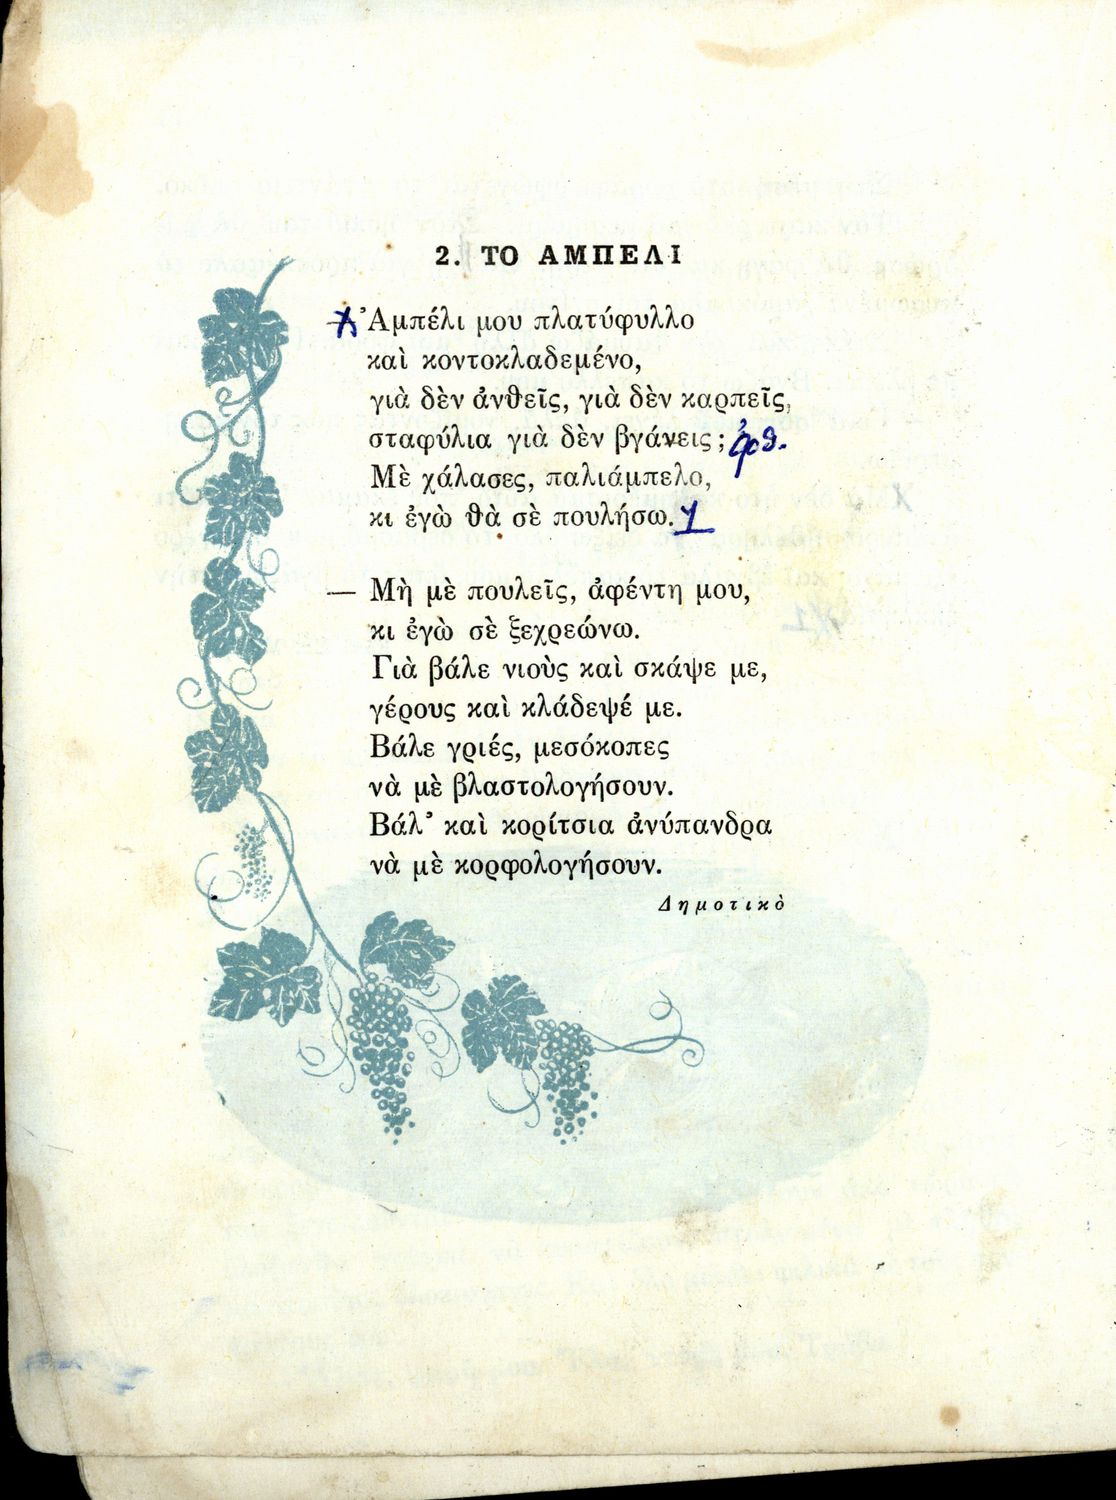 2. ΤΟ ΑΜΠΕΛΙ
— Ἀμπέλι μου πλατύφυλλο
καὶ κοντοκλαδεμένο,
γιὰ δὲν ἀνθεῖς, γιὰ δὲν καρπεῖς,
σταφύλια γιὰ δὲν βγάνεις;
Μὲ χάλασες, παλιάμπελο,
κι ἐγὼ θὰ σὲ πουλήσω.
— Μὴ μὲ πουλεῖς, ἀφέντη μου,
κι ἐγὼ σὲ ξεχρεώνω.
Γιὰ βάλε νιοὺς καὶ σκάψε με,
γέρους καὶ κλάδεψέ με.
Βάλε γριές, μεσόκοπες
νὰ μὲ βλαστολογήσουν.
Βάλ᾿ καὶ κορίτσια ἀνύπανδρα
νὰ μὲ κορφολογήσουν.
Δημοτικὸ